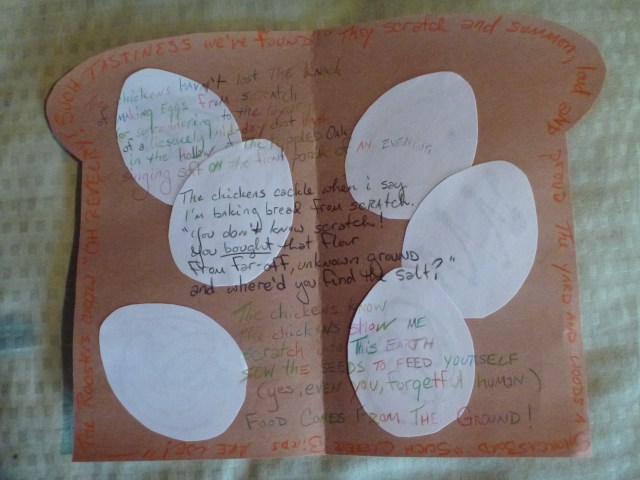 The chickens haven't lost the knack
of making eggs from scratch
or surrendering to the layer
of a leisurely midday dust bath
in the hollow of the
singing soft on the front porch of
AN EVENING.
The chickens cackle when i say
I'm baking bread from scratch.
"You don't know scratch!
You bought that flour
from far-off, unknown ground
and where'd you find the salt?"
The chickens know
The chickens SHOW ME
Scratch THIS EARTH
SOW THE SEEDS TO FEED YOURSELF
(yes, even you, forgetful human)
FOOD COMES FROM THE GROUND!
The Roosters "OH REVELRY! SUCH TASTINESS we've found!" They scratch and summon, loud AND PROUD The YARD AND WOODS A "SUCH CLEVER BIRDS ARE WE!"